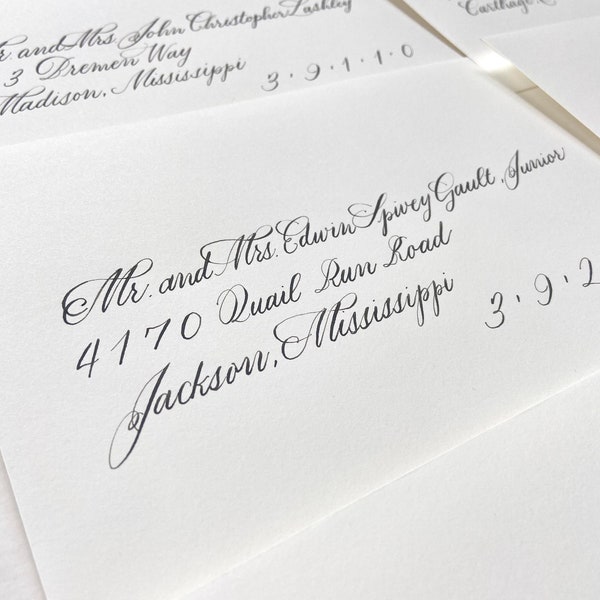 Mr. and Mrs. John Christopher Lashley
3 Dremen Way
Madison, Mississippi 3·9·1·1·0
Carthage
Mr. and Mrs. Edwin Spivey Gault, Junior
4170 Quail Run Road
Jackson, Mississippi 3·9·2